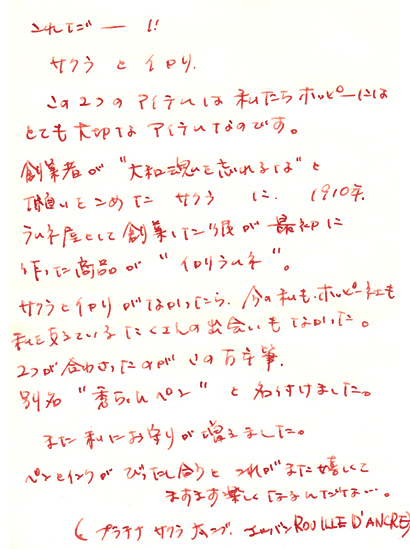 これだー!!
サクラとイカリ.
この2つのアイテムは私たちホッピーには
とても大切なアイテムなのです。
創業者が"大和魂を忘れるな"と
願いをこめたサクラに. 1910年.
ラムネ屋として創業した彼が最初に
作った商品が"イカリラムネ"。
サクラとイカリがなかったら.今の私も.ホッピー社も
私を支えているたくさんの出会いもなかった。
2つが合わさったのがこの万年筆.
別名"秀ちゃんペン"と名付けました。
また私にお守りが増えました。
ペンとインクがぴったし合うとこれがまた嬉しくて
ますます楽しくなるんだな…。
(プラチナ サクラ 太ニブ. エルバン ROUILLE D'ANCRE)